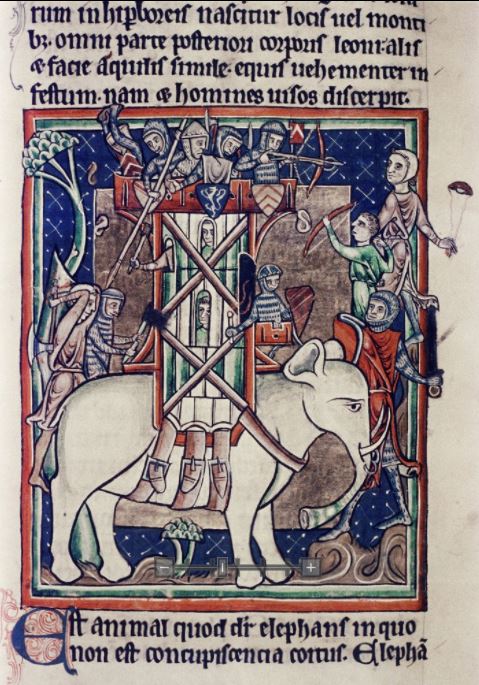 rum in hiꝑboreis nascitur locis uel monti
bꝫ. omni parte posteriori corporis leoni alis
& facie aquilis simile. equis uehementer in
festum. nam & homines uisos discerpit.
Est animal quod dr̄ elephans in quo
non est concupiscencia coitus. Elephā